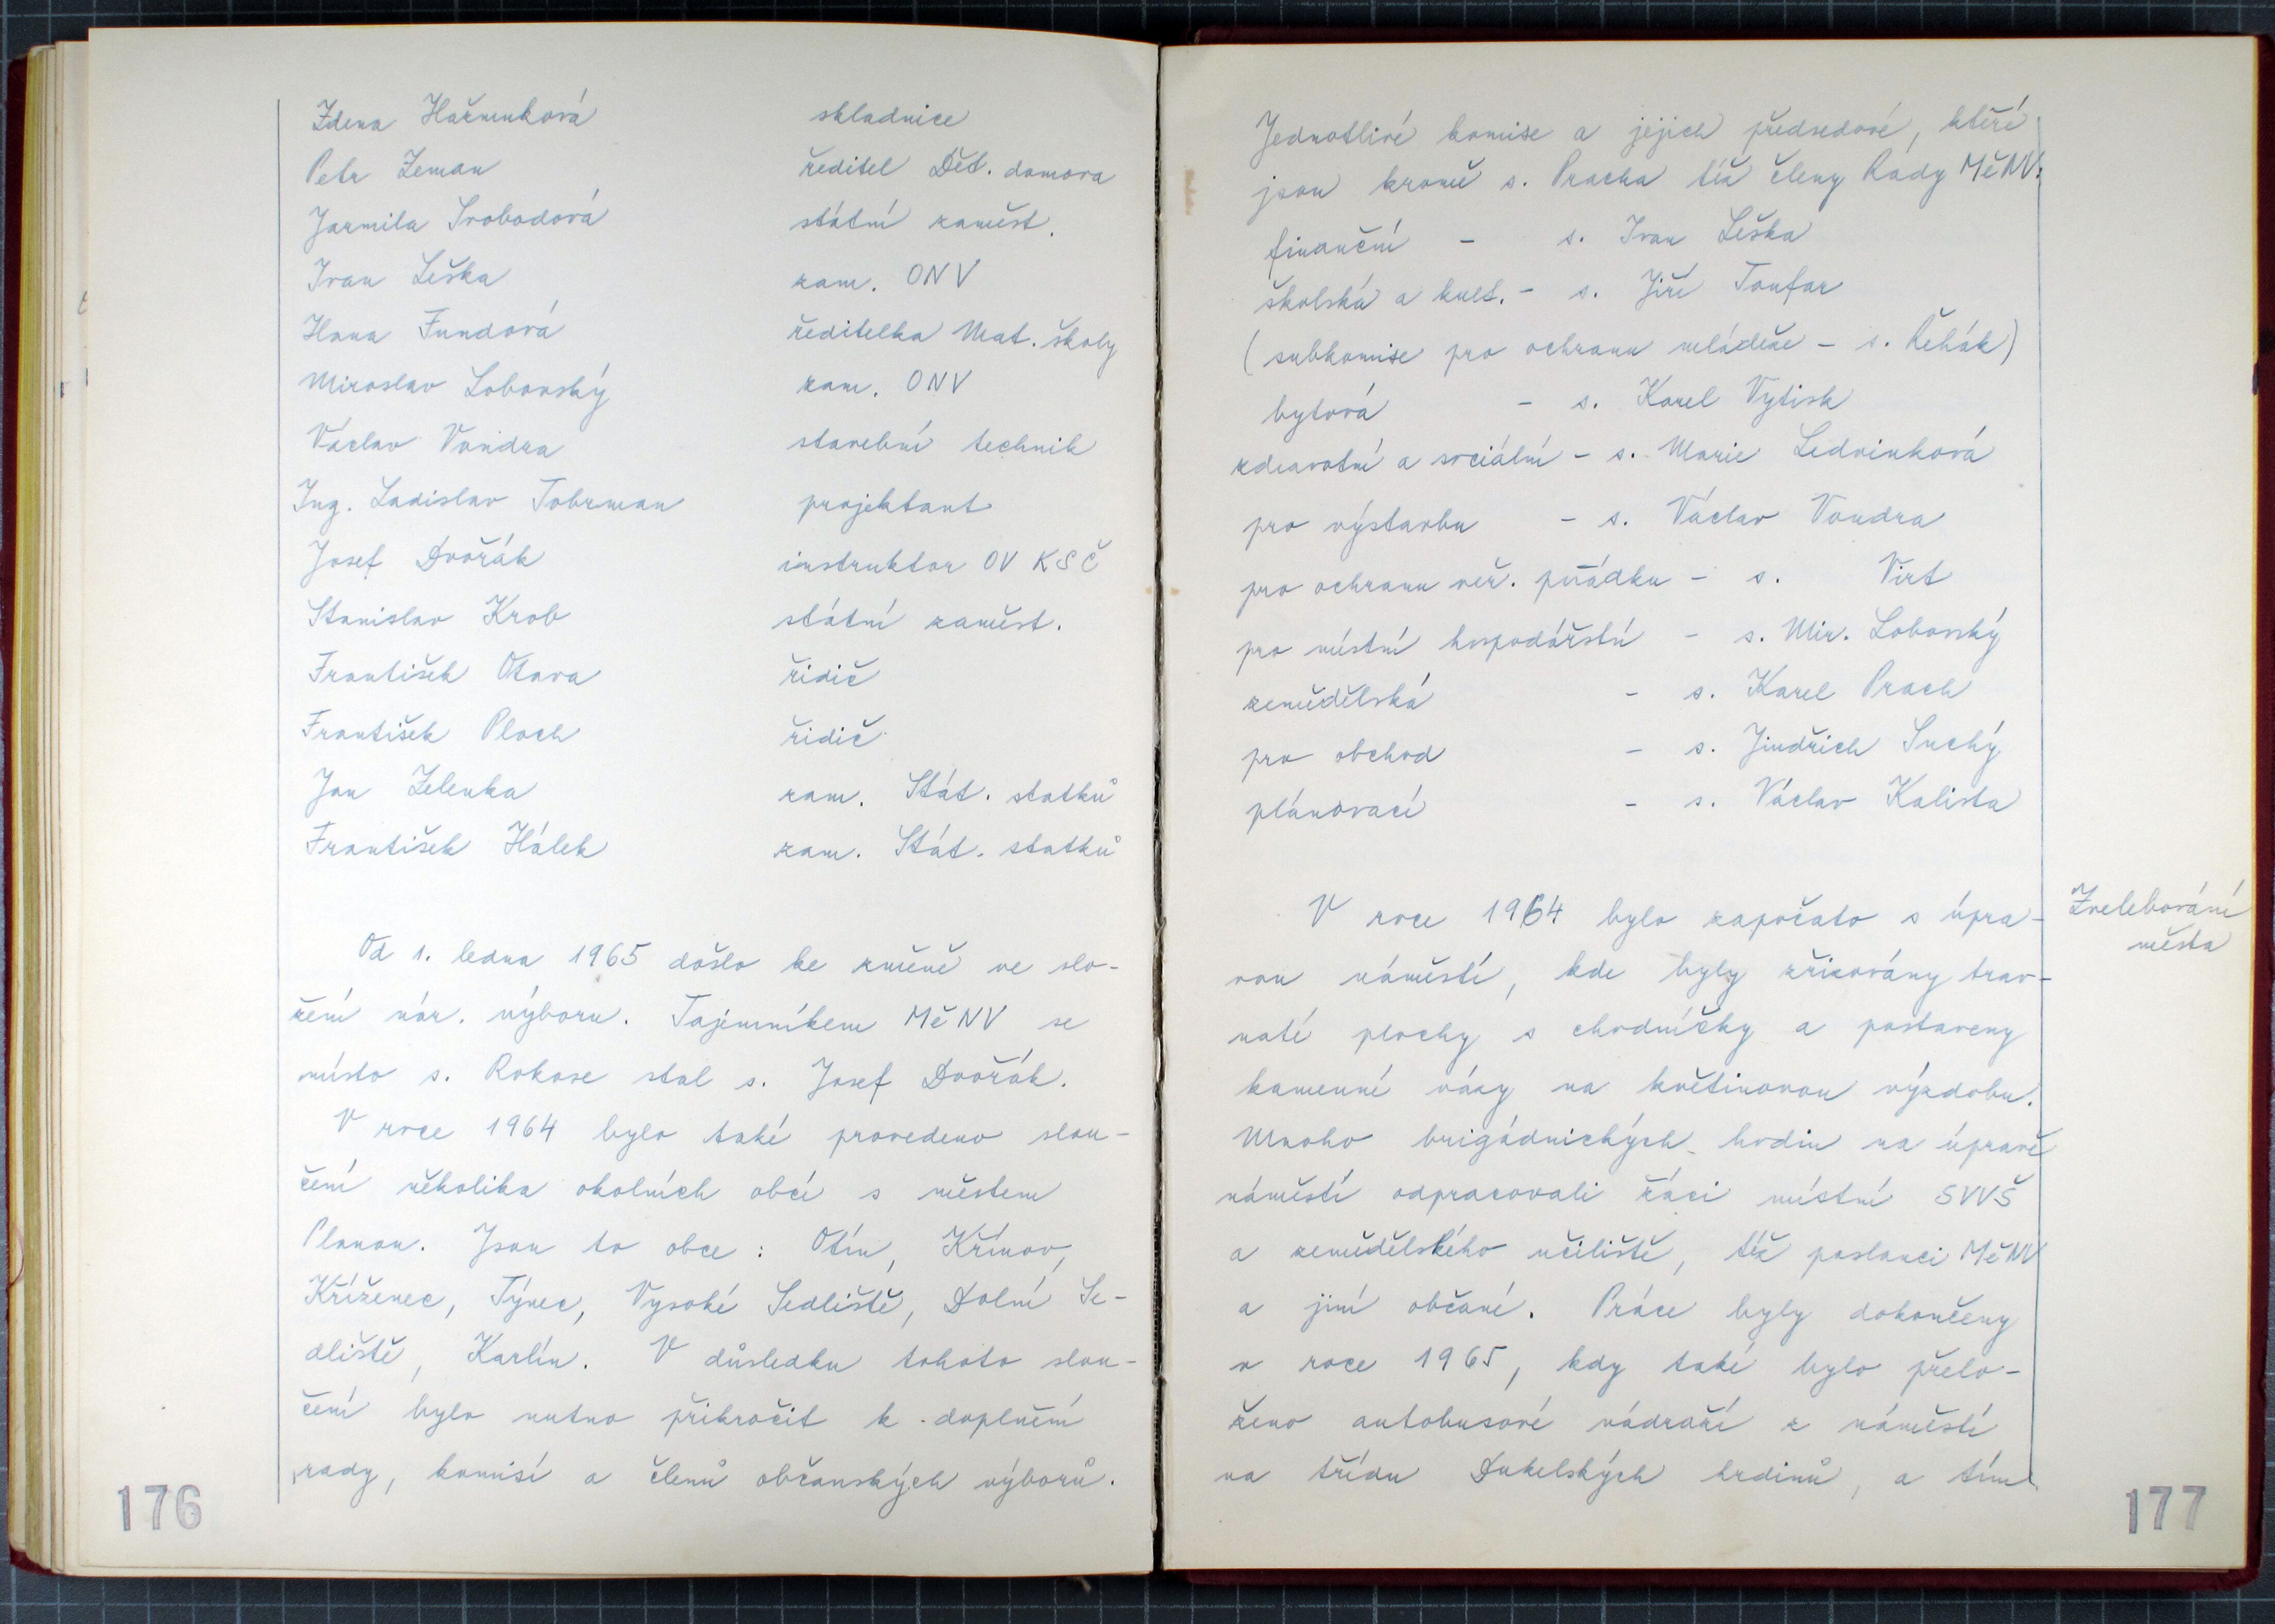 Zdena Hařmuková skladnice
Petr Zeman ředitel Dět. domova
Jarmila Svobodová státní zaměst.
Ivan Leška zam. ONV
Hana Fundová ředitelka Mat. školy
Miroslav Lobovský zam. ONV
Václav Vondra stavební technik
Ing. Ladislav Tobrman projektant
Josef Dvořák instruktor OV KSČ
Stanislav Krob státní zaměst.
František Otava řidič
František Ploch řidič
Jan Zelenka zam. Stát. statků
František Hálek zam. Stát. statků
Od 1. ledna 1965 došlo ke změně ve slo-
žení nár. výboru. Tajemníkem MěNV se
místo s. Rokose stal s. Josef Dvořák.
V roce 1964 bylo také provedeno slou-
čení několika okolních obcí s městem
Planou. Jsou to obce: Otín, Křínov,
Kříženec, Týnec, Vysoké Sedliště, Dolní Se-
dliště, Karlín. V důsledku tohoto slou-
čení bylo nutno přikročit k doplnění
rady, komisí a členů občanských výborů.
176
Jednotlivé komise a jejich předsedové, kteří
jsou kromě s. Pracha též členy Rady MěNV:
finanční - s. Ivan Leška
školská a kult. - s. Jiří Toufar
(subkomise pro ochranu mládeže - s. Řehák)
bytová - s. Karel Vytisk
zdravotní a sociální - s. Marie Ledvinková
pro výstavbu - s. Václav Vondra
pro ochranu veř. pořádku - s. Virt
pro místní hospodářství - s. Mir. Lobovský
zemědělská - s. Karel Prach
pro obchod - s. Jindřich Suchý
plánovací - s. Václav Kalista
Zvelebování
města
V roce 1964 bylo započato s úpra-
vou náměstí, kde byly zřizovány trav-
naté plochy s chodníčky a postaveny
kamenné vázy na květinovou výzdobu.
Mnoho brigádnických hodin na úpravě
náměstí odpracovali žáci místní SVVŠ
a zemědělského učiliště, též poslanci MěNV
a jiní občané. Práce byly dokončeny
v roce 1965, kdy také bylo přelo-
ženo autobusové nádraží z náměstí
na třídu Dukelských hrdinů, a tím
177